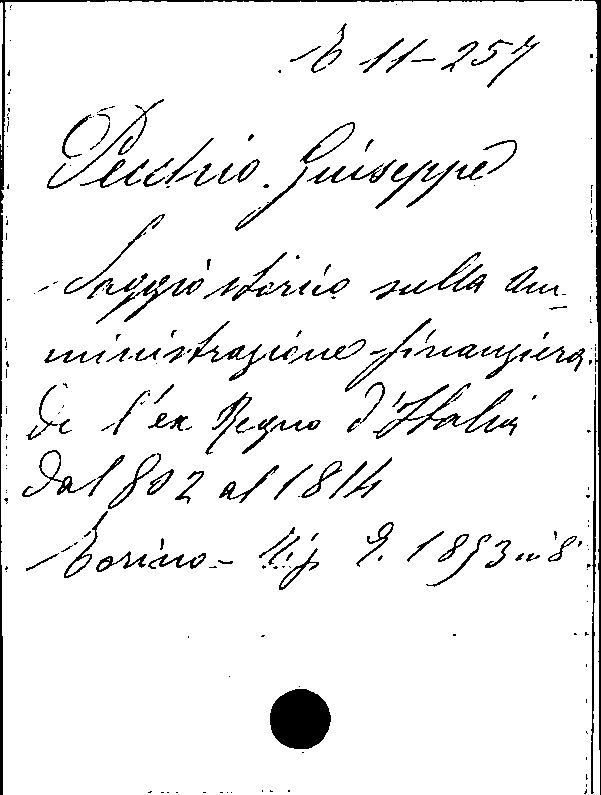 E 11-257
Pecchio. Giuseppe
Saggio storico sulla am-
ministrazione finanziera.
De l'ex Regno d'Italia
Dal 802 al 1814
Torino - Tip. 1853 in 8°